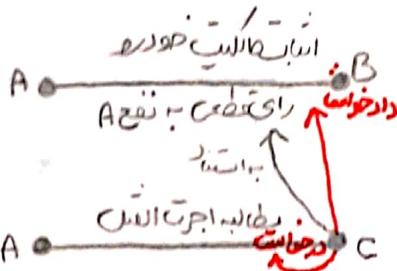 اثبات مالکیت خودرو
A B
دادخواست
رای قطعی به نفع A
به استناد
مطالبه اجرت المثل
A درخواست C